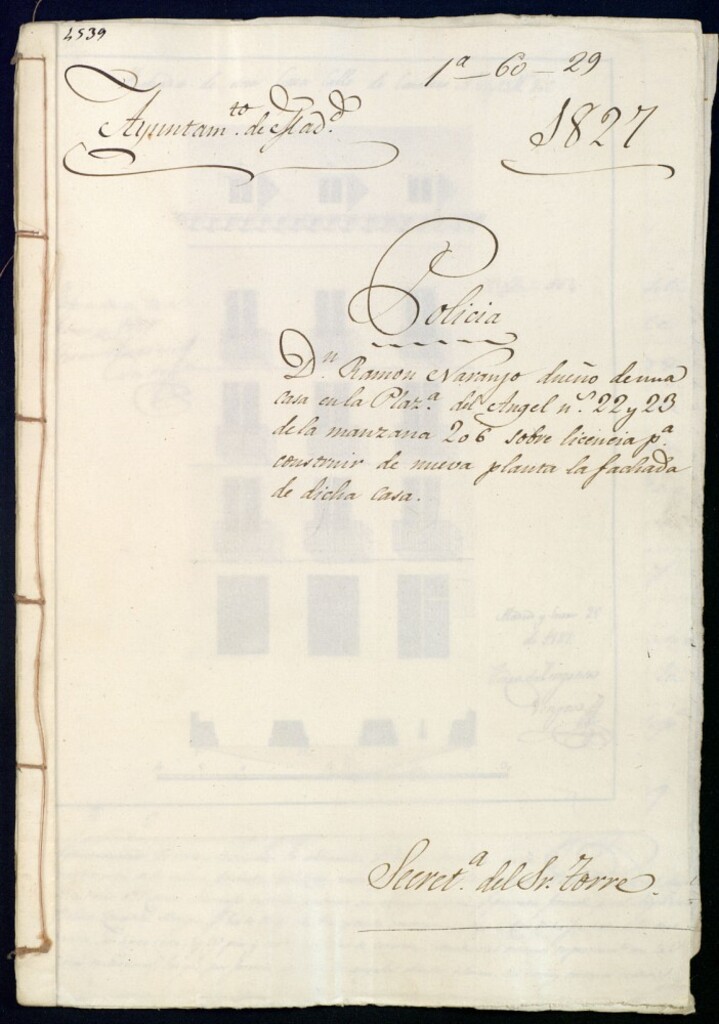 4539
1ª - 60 - 29
Ayuntam.to de Mad.d
1827
Policia
D.n Ramon Naranjo dueño de una
casa en la Plaz.a del Angel n.s 22 y 23
de la manzana 206 sobre licencia p.a
construir de nueva planta la fachada
de dicha casa.
Secret.a del Sr. Torre.